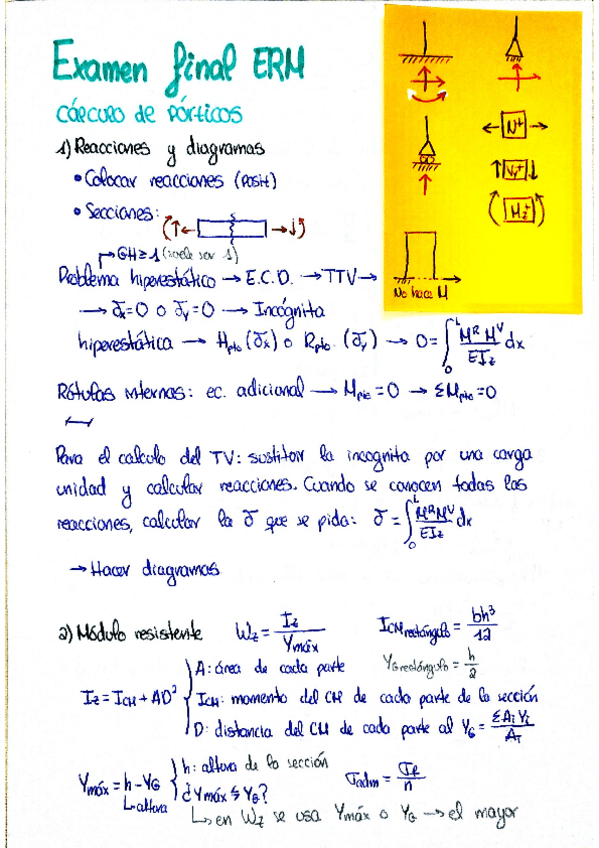 Examen final ERM
CÁLCULO DE PÓRTICOS
1) Reacciones y diagramas
• Colocar reacciones (POSIT)
• Secciones:
GH ≥ 1 (suele ser 1)
Problema hiperestático → E.C.D. → TTV →
→ δx = 0 o δy = 0 → Incógnita
hiperestática → Hpto (δx) o Rpto. (δy) → 0 = ∫₀ᴸ MᴿMⱽ/EIz dx
Rótulas internas: ec. adicional → Mpte = 0 → ΣMpto = 0
Para el calculo del TV: sustituir la incognita por una carga
unidad y calcular reacciones. Cuando se conocen todas las
reacciones, calcular la δ que se pida: δ = ∫₀ᴸ MᴿMⱽ/EIz dx
→ Hacer diagramas
2) Módulo resistente Wz = Iz/Ymáx ICM rectángulo = bh³/12
YG rectángulo = h/2
A: área de cada parte
Iz = ICM + AD² ICM: momento del CM de cada parte de la sección
D: distancia del CM de cada parte al YG = ΣAiYi/AT
Ymáx = h - YG h: altura de la sección σadm = σf/n
altura ¿Ymáx ≶ YG?
↳ en Wz se usa Ymáx o YG → el mayor
N+
V+
Mz+
No hace M